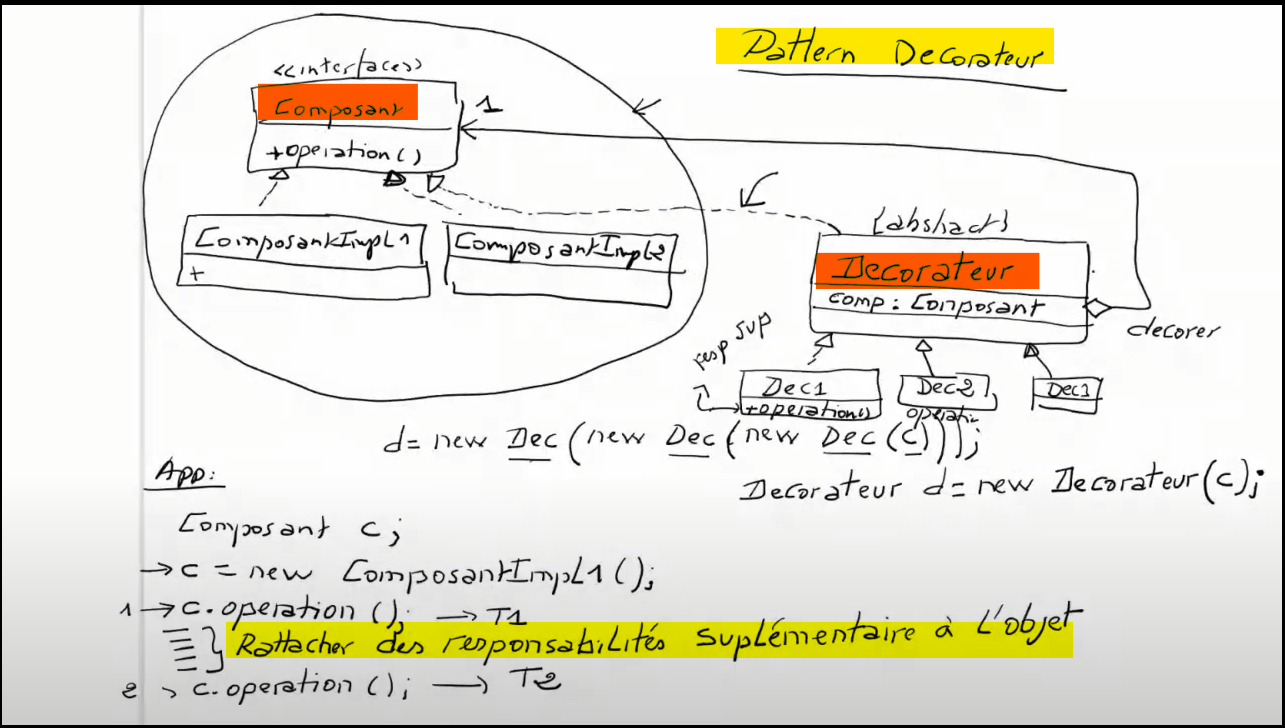 Pattern Decorateur
<<interfaces>>
Composant
1
+operation()
ComposantImpl1
+
ComposantImpl2
{abstract}
Decorateur
comp : Composant
decorer
resp sup
Dec1
+operation()
Dec2
operatio
Dec3
d= new Dec (new Dec (new Dec (c)));
Decorateur d= new Decorateur(c);
App:
Composant c;
→ c = new ComposantImpl1();
1 → c.operation(); → T1
Rattacher des responsabilités suplémentaire à l'objet
2 → c.operation(); → T2